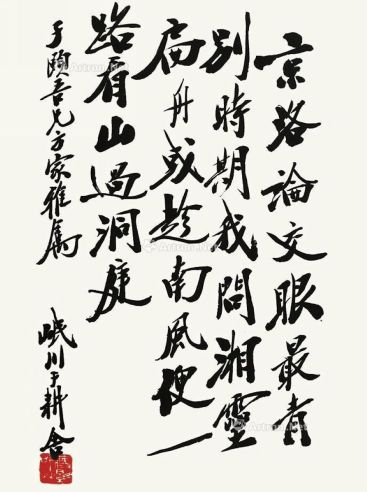 京洛論交眼最青
別時期我問湘靈
扁舟或趁南風便一
路看山過洞庭
子頤吾兄方家雅屬
岷川 耕舍